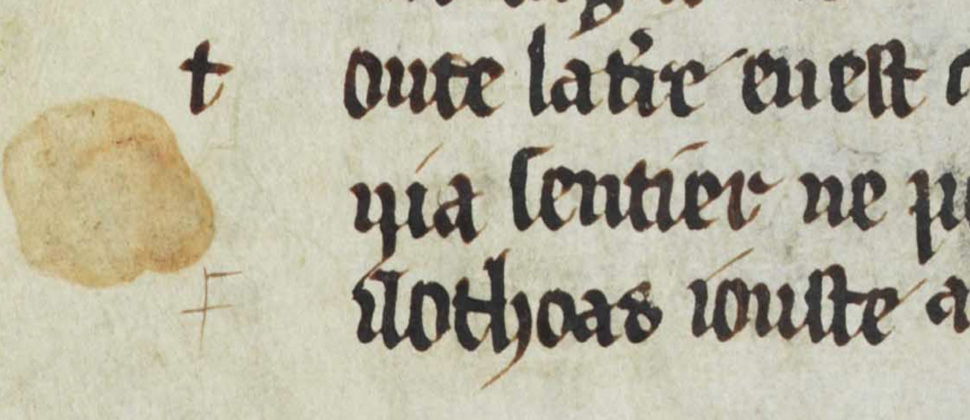 t oute la t're en est
nia sentier ne
iosthoas iouste a